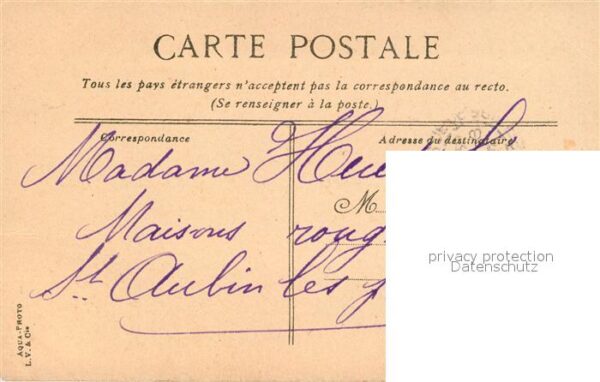 CARTE POSTALE
Tous les pays étrangers n'acceptent pas la correspondance au recto.
(Se renseigner à la poste.)
Correspondance
Adresse du destinataire
Madame
M
Maisons
St. Aubin les
privacy protection
Datenschutz
AQUA-PHOTO
L.V. & Cie